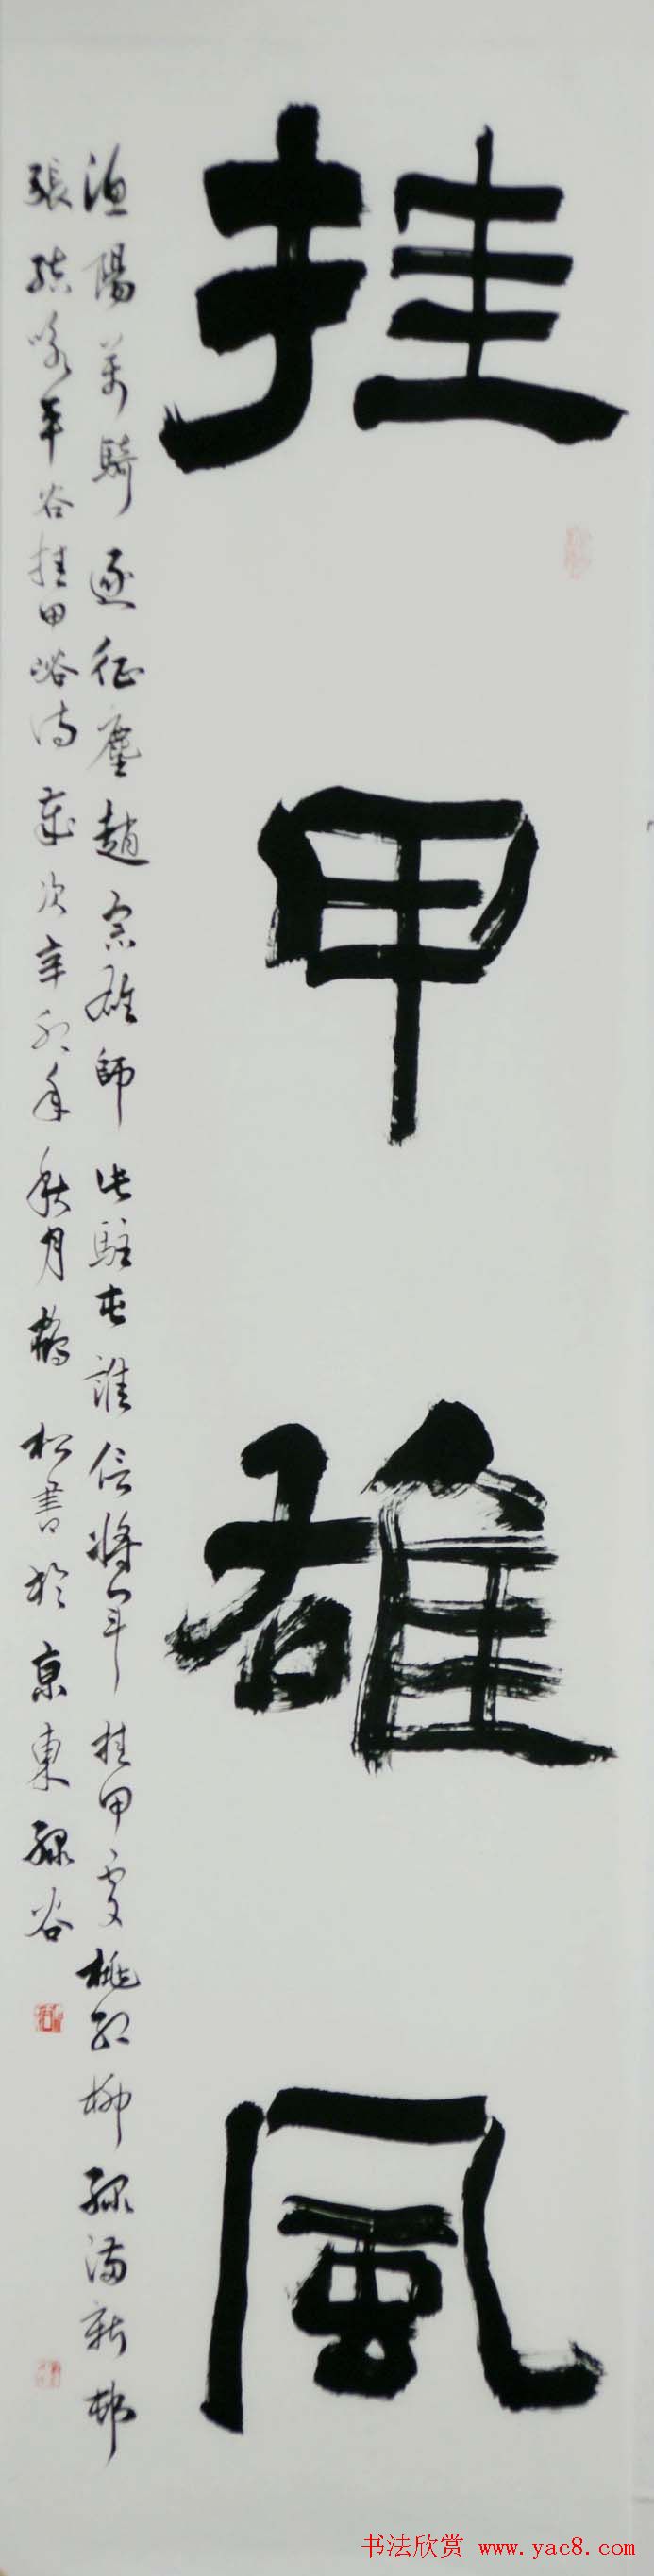 挂甲雄風
漁陽萬騎逐征塵趙宗雄師此駐屯誰信將軍挂甲處桃紅柳綠滿新邨
張 咏平谷挂甲峪詩歲次辛卯年秋月鶴松書於京東綠谷
书法欣赏 www.yac8.com